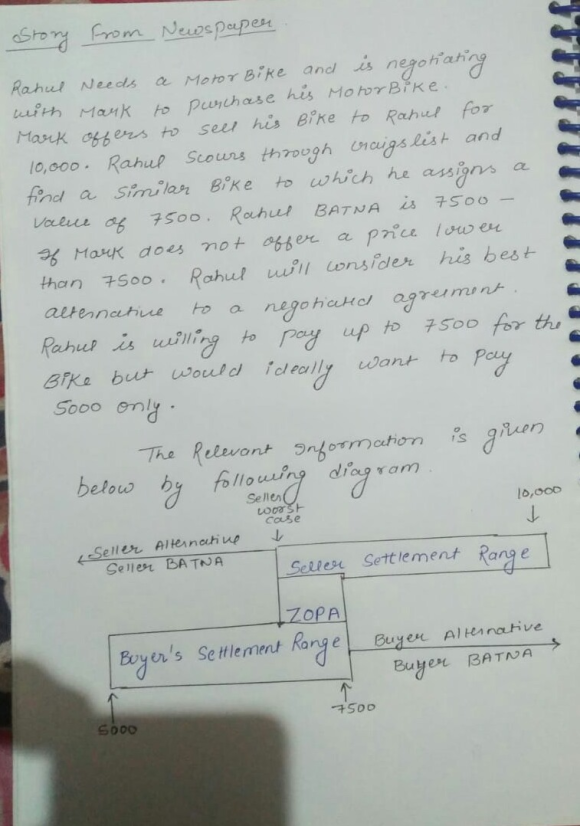 Story From Newspaper.
Rahul Needs a MotorBike and is negotiating
with Mark to purchase his MotorBike.
Mark offers to sell his Bike to Rahul for
10,000. Rahul Scours through craigslist and
find a Similar Bike to which he assigns a
value of 7500. Rahul BATNA is 7500 –
If Mark does not offer a price lower
than 7500. Rahul will consider his best
alternative to a negotiated agreement.
Rahul is willing to pay up to 7500 for the
Bike but would ideally want to pay
5000 only.
The Relevant Information is given
below by following diagram.
Seller
worst
case
10,000
Seller Alternative
Seller BATNA
Seller Settlement Range
ZOPA
Buyer's Settlement Range
Buyer Alternative
Buyer BATNA
5000
7500